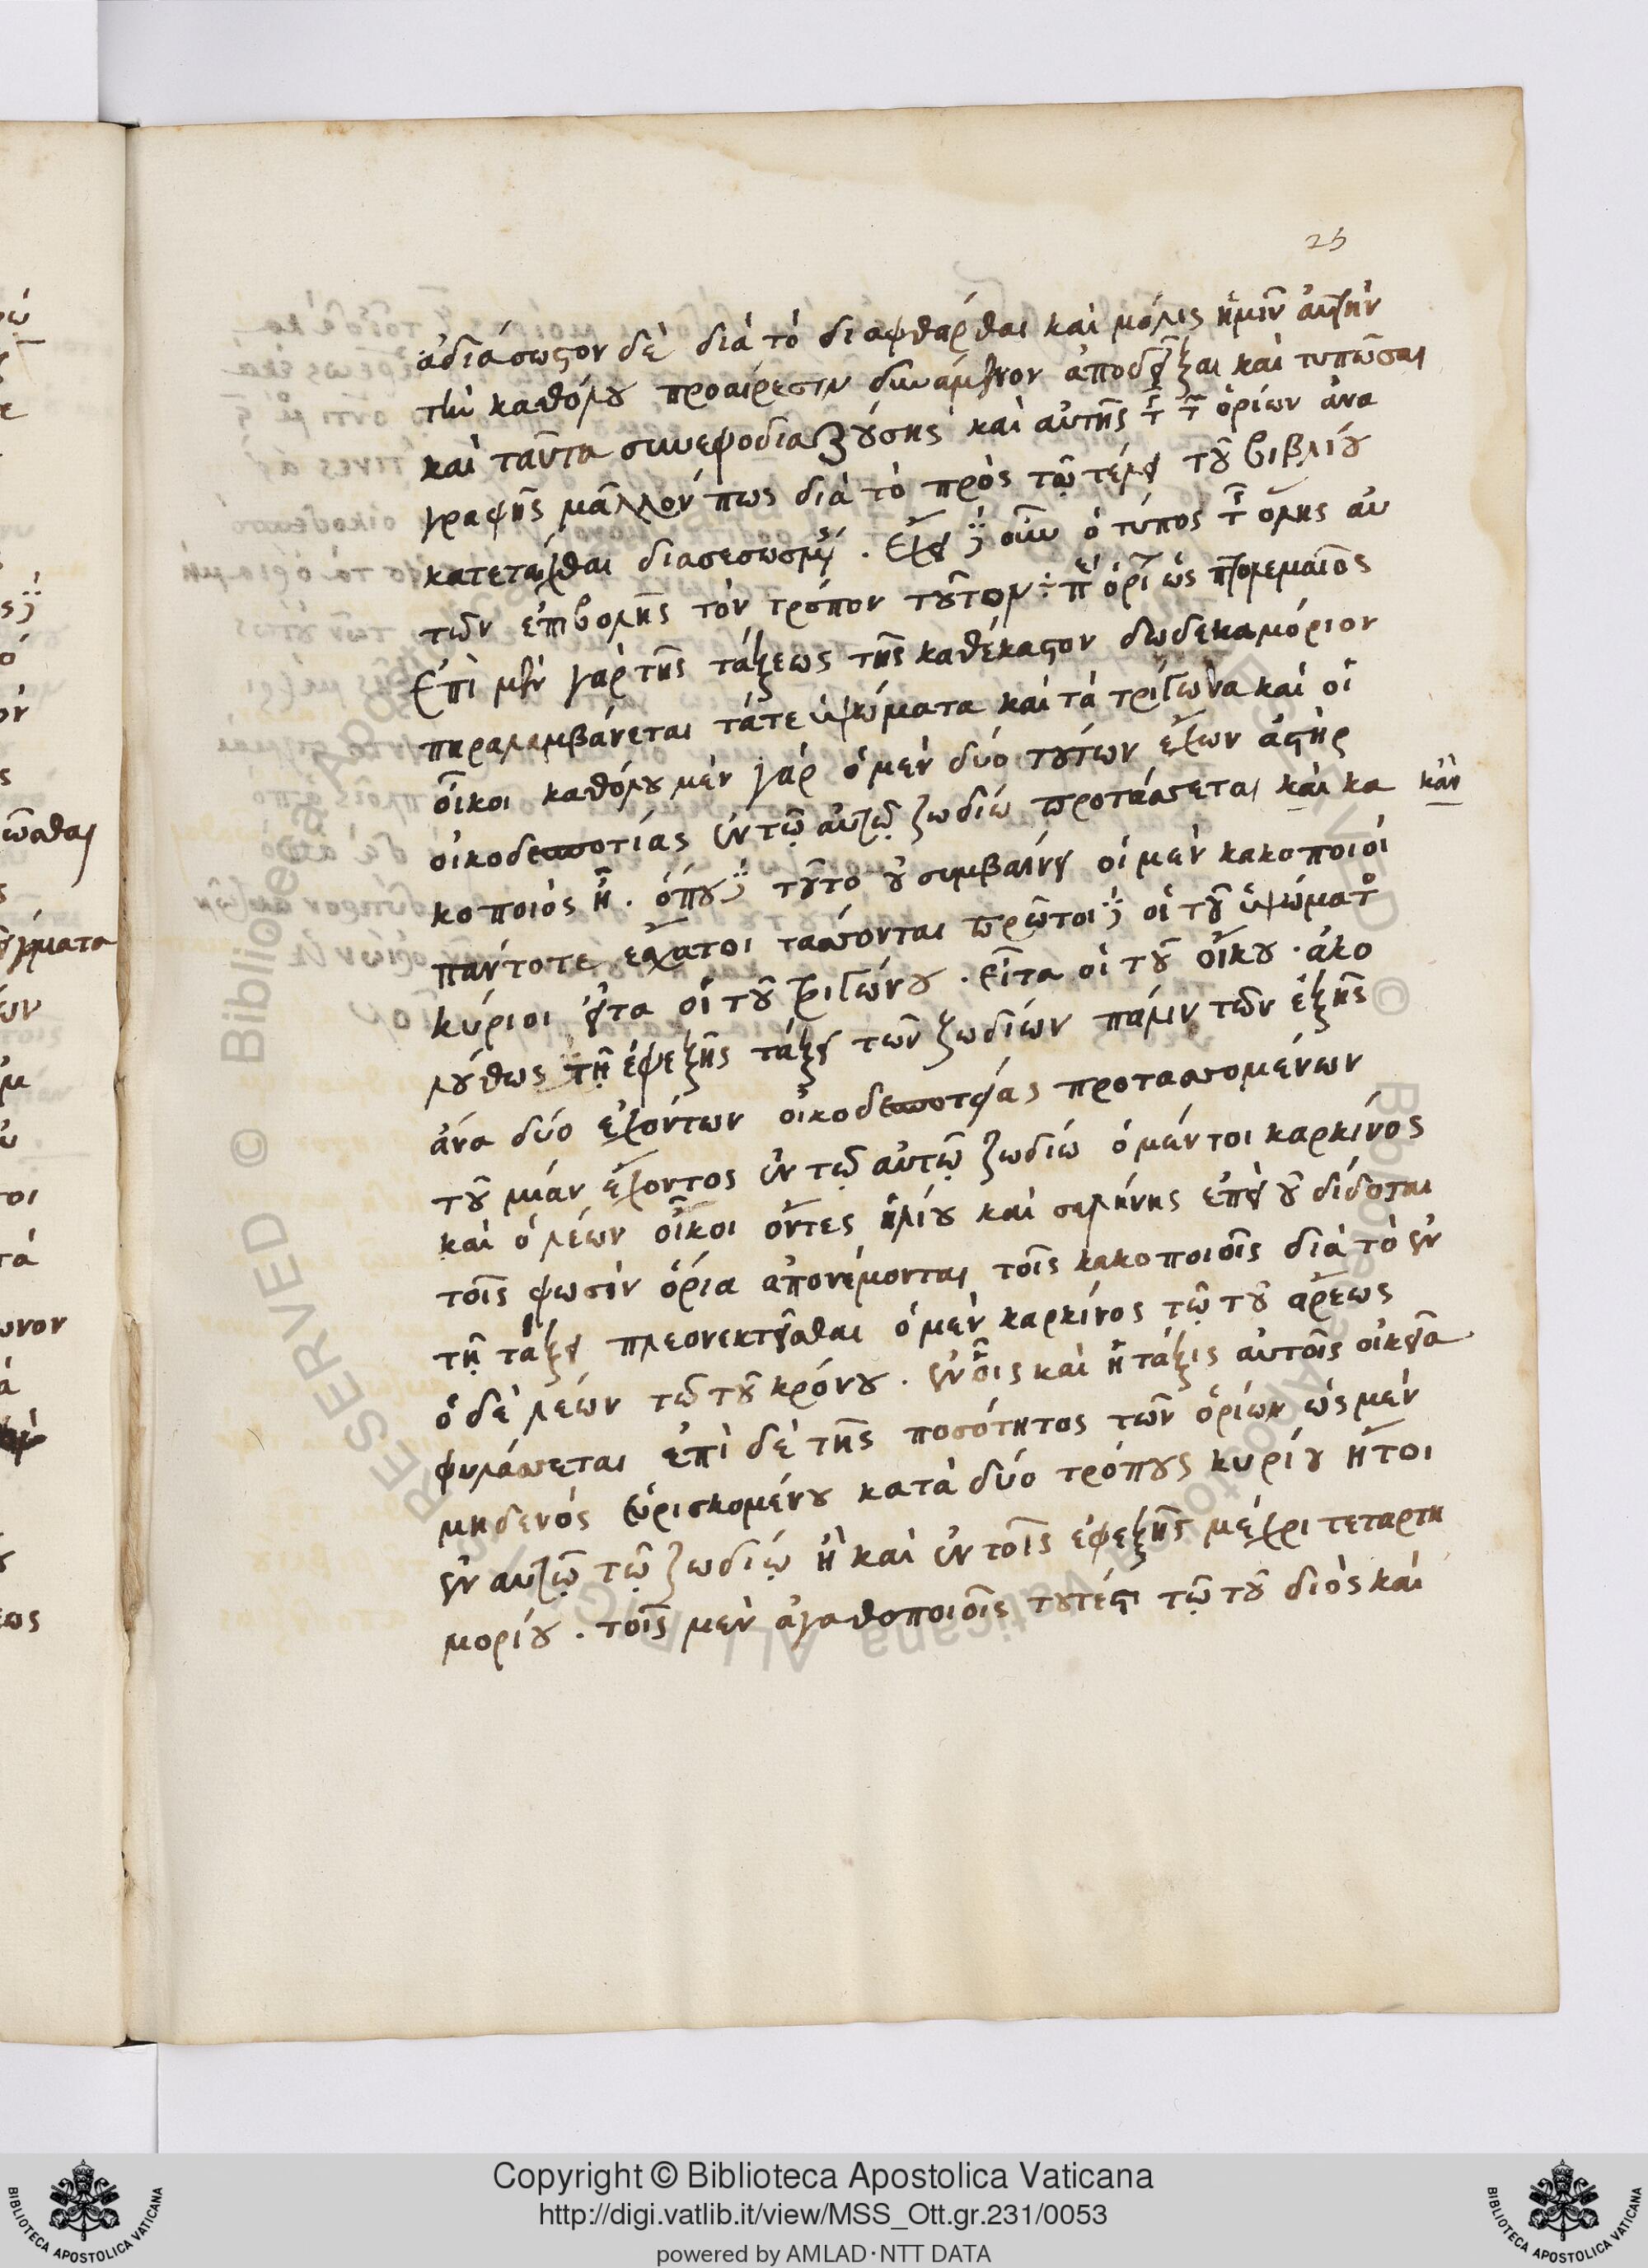 25
ἀδιάσωστον δὲ διὰ τὸ διαφθάρθαι καὶ μόλις ἡμῖν αὐτὴν
τὴν καθόλου προαίρεσιν δυνάμενον ἀποδεῖξαι καὶ τυπῶσαι
καὶ ταῦτα συνεφοδιαζούσης καὶ αὐτῆς τῆς τῶν ὁρίων ἀνα
γραφῆς μᾶλλόν πως διὰ τὸ πρὸς τῷ τέλει τοῦ βιβλίου
κατετάχθαι διασεσωσμένης. ἔχει δὲ οὖν ὁ τύπος τῆς ὅλης αὐ
τῶν ἐπιβολῆς τὸν τρόπον τοῦτον : περὶ ὁρίων ὡς πτολεμαῖος
Ἐπὶ μὲν γὰρ τῆς τάξεως τῆς καθ' ἕκαστον δωδεκαμόριον
παραλαμβάνεται τά τε ὑψώματα καὶ τὰ τρίγωνα καὶ οἱ
οἶκοι καθόλου μὲν γὰρ ὁ μὲν δύο τούτων ἔχων ἀστὴρ
οἰκοδεσποτίας ἐν τῷ αὐτῷ ζωδίῳ προτάσσεται καὶ κα κἂν
κοποιὸς ᾖ. ὅπου δὲ τοῦτο οὐ συμβαίνει οἱ μὲν κακοποιοὶ
πάντοτε ἔσχατοι τάσσονται πρῶτοι δὲ οἱ τοῦ ὑψώματος
κύριοι εἶτα οἱ τοῦ τριγώνου. εἶτα οἱ τοῦ οἴκου. ἀκο
λούθως τῇ ἐφεξῆς τάξει τῶν ζωδίων πάλιν τῶν ἑξῆς
ἀνὰ δύο ἐχόντων οἰκοδεσποτείας προτασσομένων
τοῦ μίαν ἔχοντος ἐν τῷ αὐτῷ ζωδίῳ ὁ μέντοι καρκίνος
καὶ ὁ λέων οἶκοι ὄντες ἡλίου καὶ σελήνης ἐπεὶ οὐ δίδοται
τοῖς φωσὶν ὅρια ἀπονέμονται τοῖς κακοποιοῖς διὰ τὸ ἐν
τῇ τάξει πλεονεκτεῖσθαι ὁ μὲν καρκίνος τῷ τοῦ ἄρεως
ὁ δὲ λέων τῷ τοῦ κρόνου. ἐν οἷς καὶ ἡ τάξις αὐτοῖς οἰκεῖα
φυλάσσεται ἐπὶ δὲ τῆς ποσότητος τῶν ὁρίων ὡς μὲν
μηδενὸς εὑρισκομένου κατὰ δύο τρόπους κυρίου ἤτοι
ἐν αὐτῷ τῷ ζωδίῳ ἢ καὶ ἐν τοῖς ἐφεξῆς μέχρι τεταρτη
μορίου. τοῖς μὲν ἀγαθοποιοῖς τουτέστι τῷ τοῦ διὸς καὶ
Copyright © Biblioteca Apostolica Vaticana
http://digi.vatlib.it/view/MSS_Ott.gr.231/0053
powered by AMLAD·NTT DATA
BIBLIOTECA APOSTOLICA VATICANA
BIBLIOTECA APOSTOLICA VATICANA